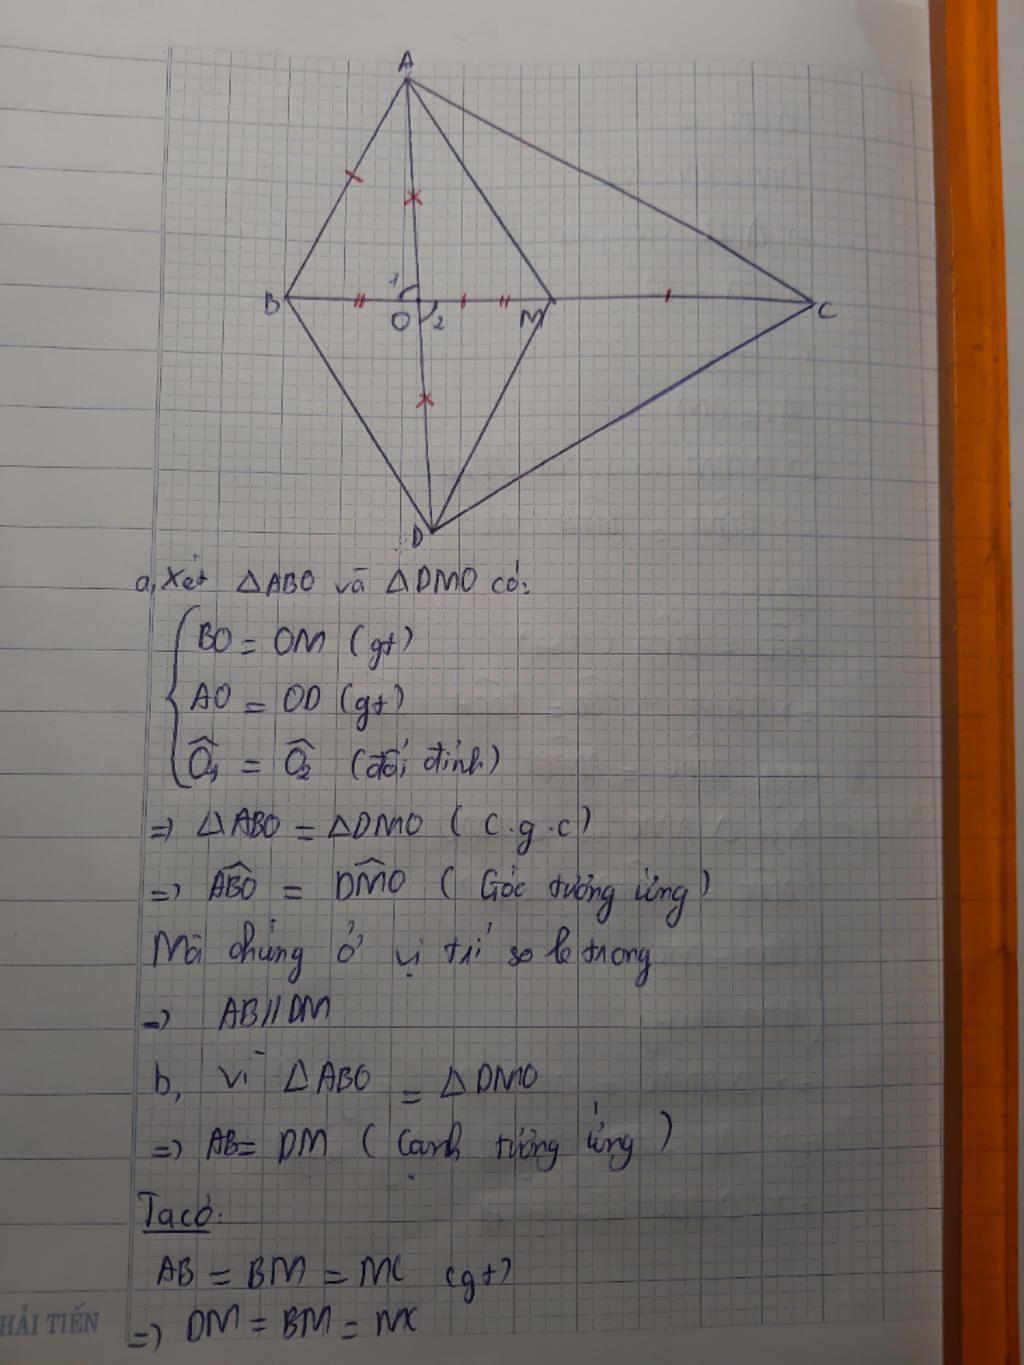 A
1
B
O
2
M
C
D
a, Xét △ABO và △DMO có:
BO = OM (gt)
AO = OD (gt)
Ô₁ = Ô₂ (đối đỉnh)
=> △ABO = △DMO ( c.g.c)
=> ABO = DMO ( Góc tương ứng)
Mà chúng ở vị trí so le trong
=> AB//DM
b, Vì △ABO = △DMO
=> AB= DM ( Cạnh tương ứng )
Ta có:
AB = BM = MC (gt)
=> DM = BM = MC
HẢI TIẾN